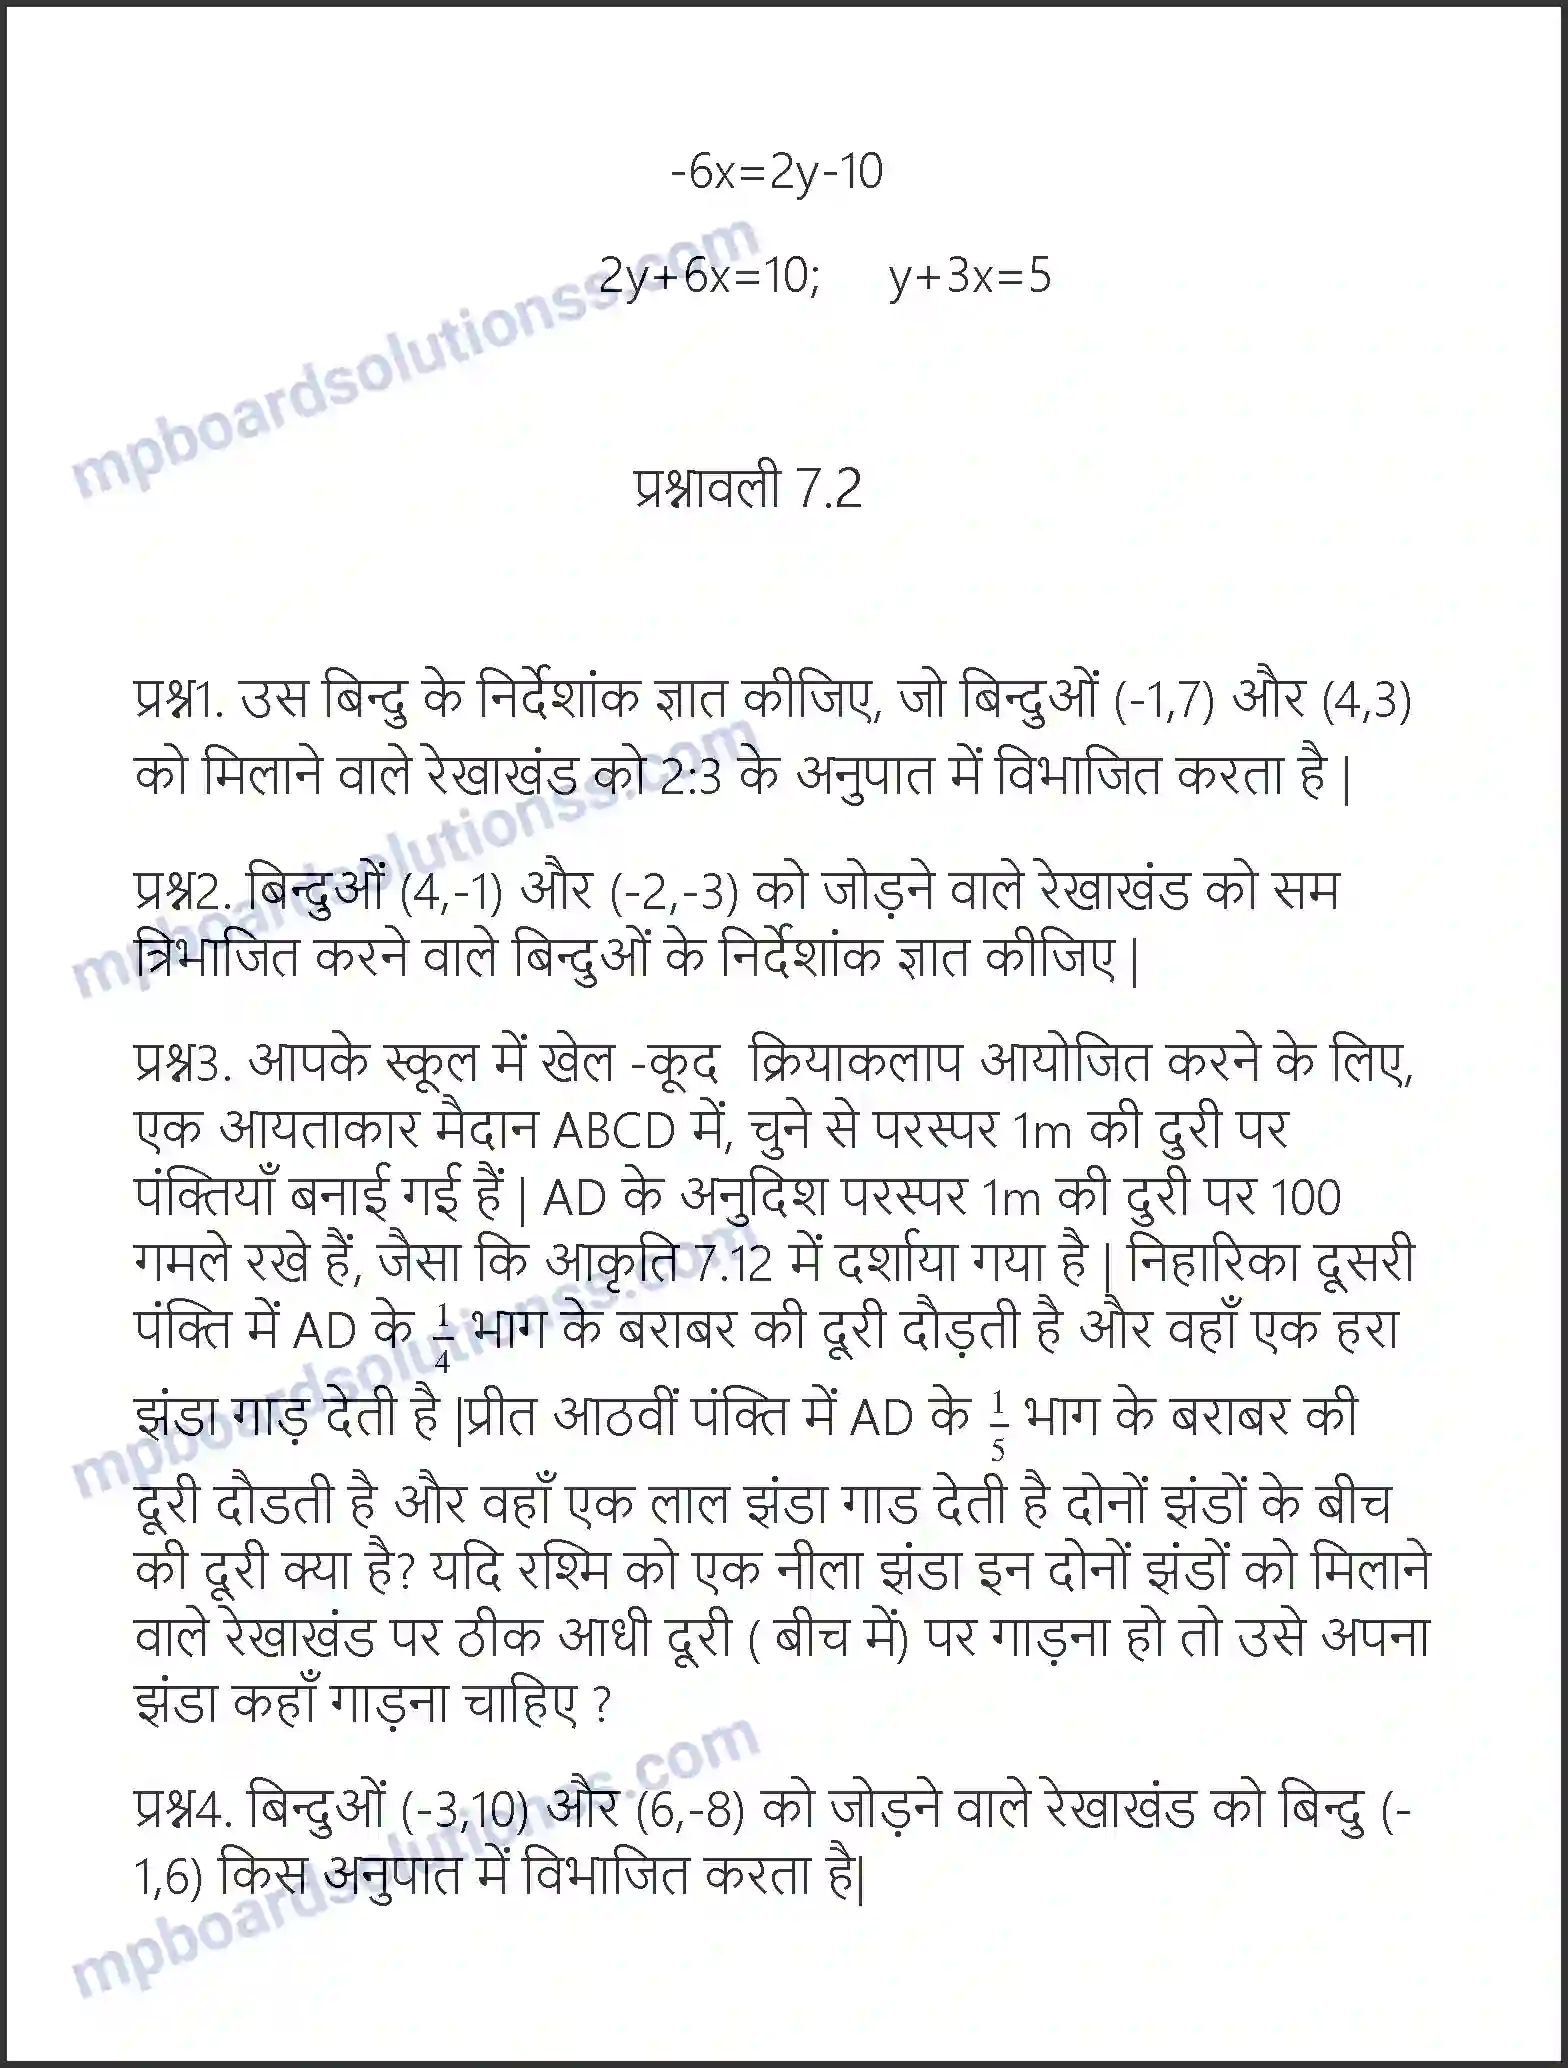 -6x=2y-10
2y+6x=10; y+3x=5
प्रश्नावली 7.2
प्रश्न1. उस बिन्दु के निर्देशांक ज्ञात कीजिए, जो बिन्दुओं (-1,7) और (4,3)
को मिलाने वाले रेखाखंड को 2:3 के अनुपात में विभाजित करता है |
प्रश्न2. बिन्दुओं (4,-1) और (-2,-3) को जोड़ने वाले रेखाखंड को सम
त्रिभाजित करने वाले बिन्दुओं के निर्देशांक ज्ञात कीजिए |
प्रश्न3. आपके स्कूल में खेल -कूद क्रियाकलाप आयोजित करने के लिए,
एक आयताकार मैदान ABCD में, चुने से परस्पर 1m की दुरी पर
पंक्तियाँ बनाई गई हैं | AD के अनुदिश परस्पर 1m की दुरी पर 100
गमले रखे हैं, जैसा कि आकृति 7.12 में दर्शाया गया है | निहारिका दूसरी
पंक्ति में AD के 1/4 भाग के बराबर की दूरी दौड़ती है और वहाँ एक हरा
झंडा गाड़ देती है |प्रीत आठवीं पंक्ति में AD के 1/5 भाग के बराबर की
दूरी दौडती है और वहाँ एक लाल झंडा गाड देती है दोनों झंडों के बीच
की दूरी क्या है? यदि रश्मि को एक नीला झंडा इन दोनों झंडों को मिलाने
वाले रेखाखंड पर ठीक आधी दूरी ( बीच में) पर गाड़ना हो तो उसे अपना
झंडा कहाँ गाड़ना चाहिए ?
प्रश्न4. बिन्दुओं (-3,10) और (6,-8) को जोड़ने वाले रेखाखंड को बिन्दु (-
1,6) किस अनुपात में विभाजित करता है|
mpboardsolutionss.com
mpboardsolutionss.com
mpboardsolutionss.com
mpboardsolutionss.com